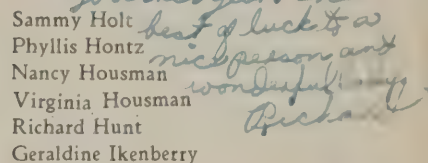 Sammy Holt
Phyllis Hontz
Nancy Housman
Virginia Housman
Richard Hunt
Geraldine Ikenberry
best of luck to a
nice person and
wonderful